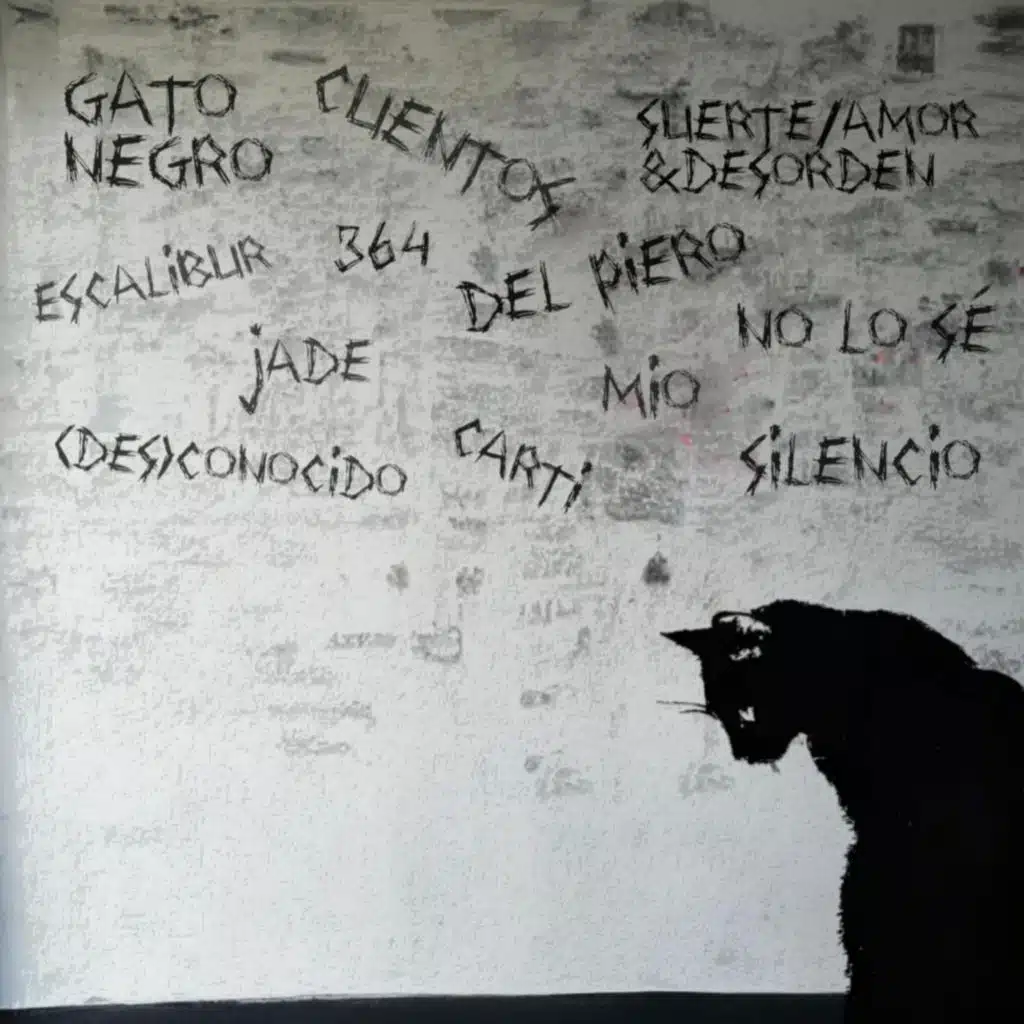 GATO
NEGRO
CUENTOS
SUERTE/AMOR
&DESORDEN
ESCALiBUR
364
DEL PiERO
NO LO SÉ
jADE
MiO
(DES)CONOCiDO
CARTi
SiLENCiO